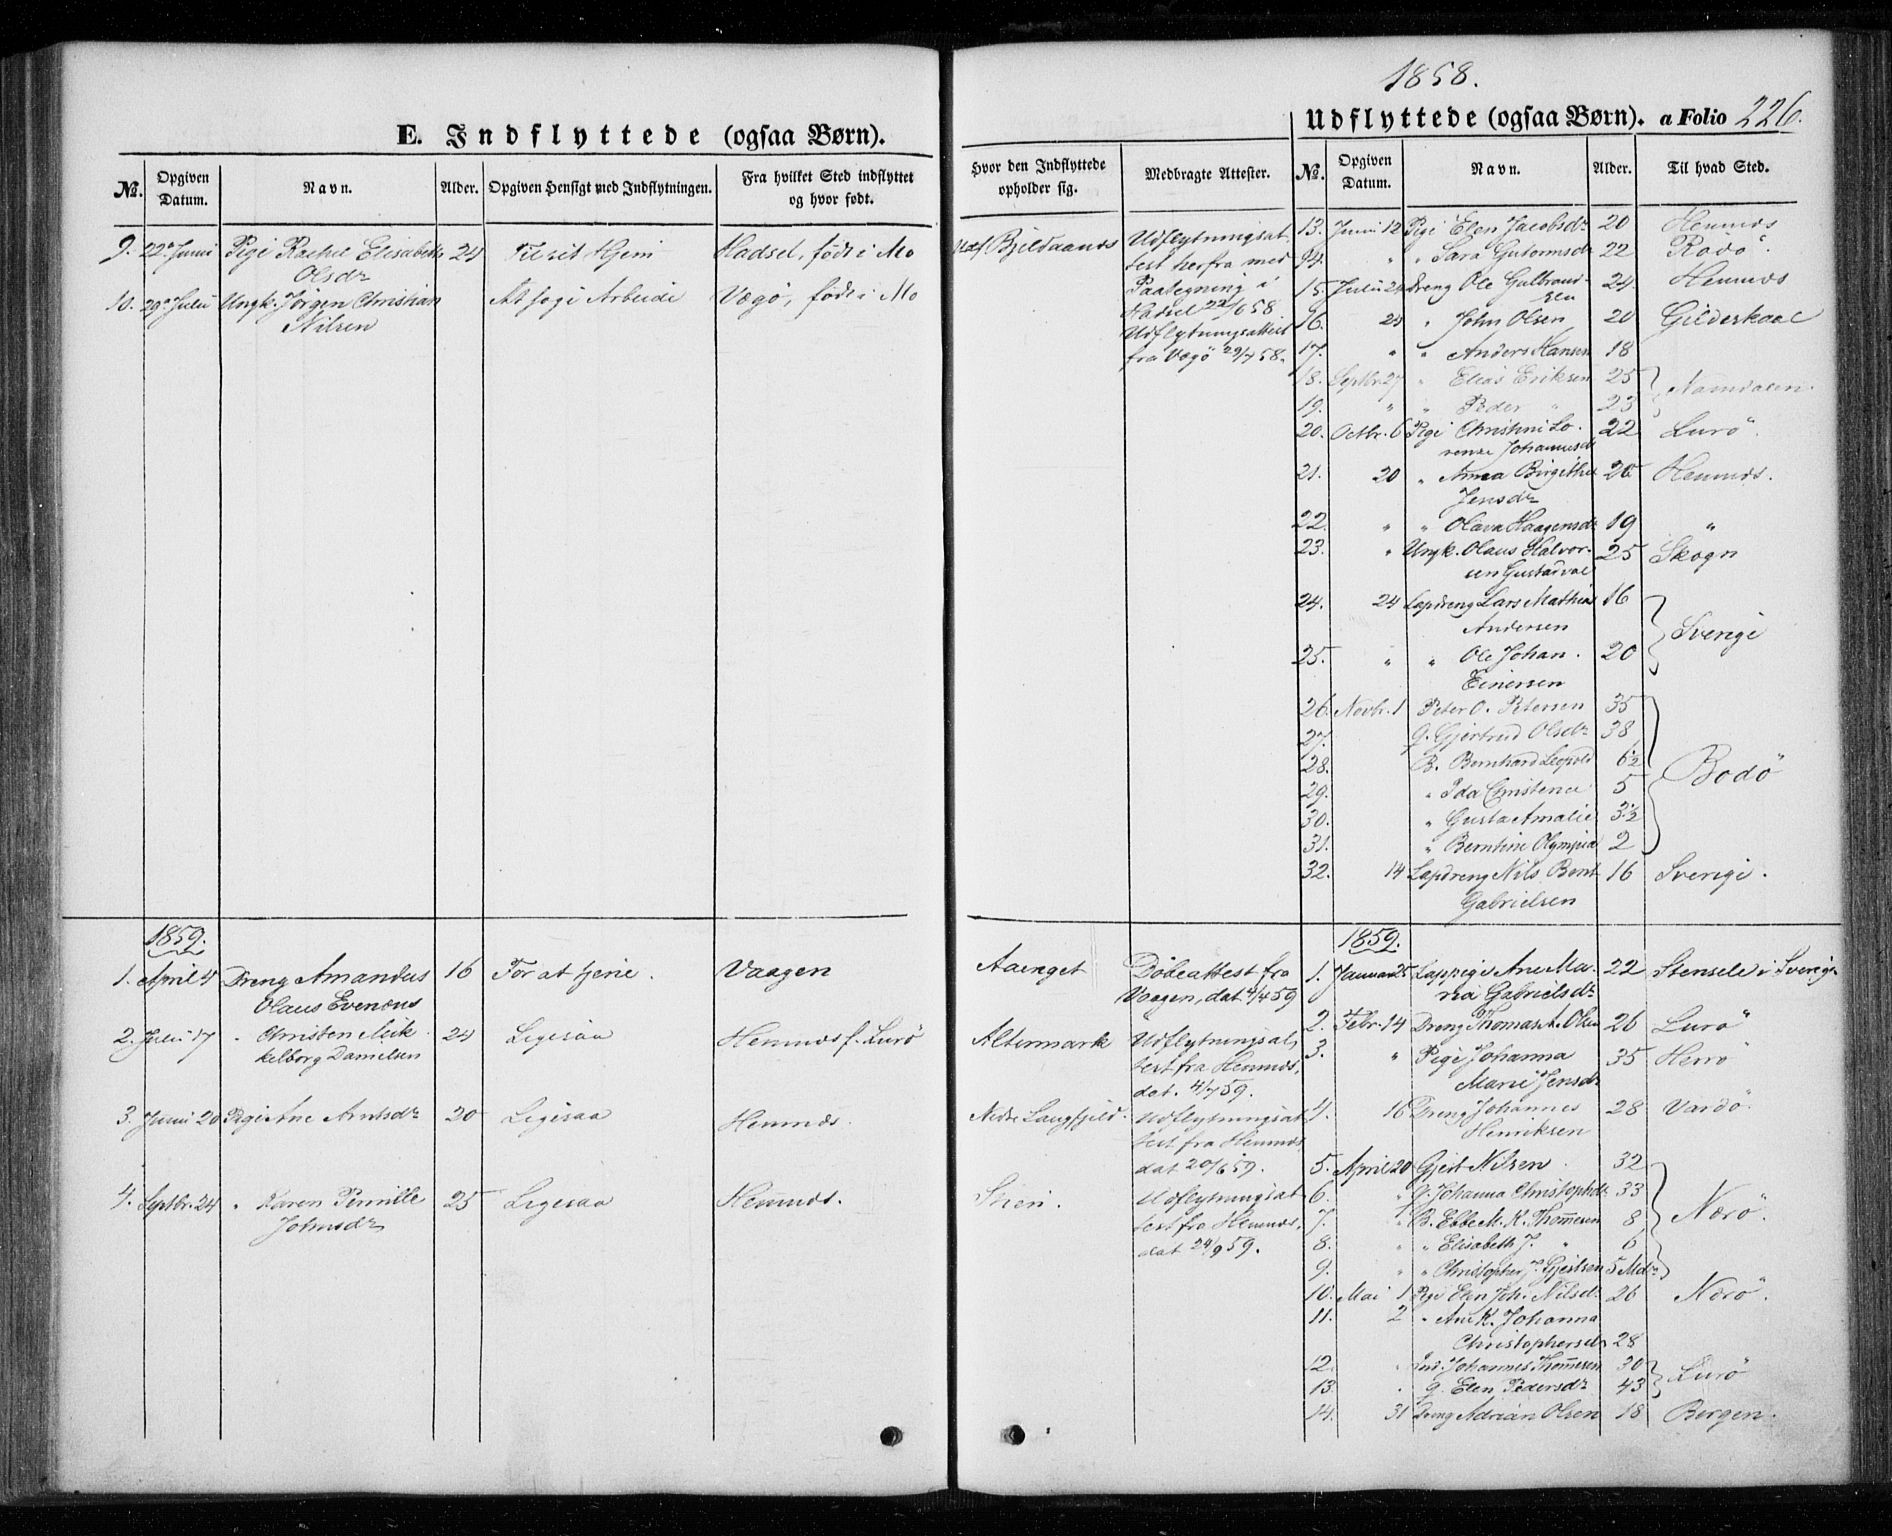 1858.
E. Indflyttede (ogsaa Børn).
Udflyttede (ogsaa Børn). a Folio 226.
No. Opgiven Datum. Navn. Alder. Opgiven Hensigt med Indflytningen. Fra hvilket Sted indflyttet og hvor født.
Hvor den Indflyttede opholder sig. Medbragte Attester. No. Opgiven Datum. Navn. Alder. Til hvad Sted.
9. 22de Juni Pige Rachel Elisabeth 24 Til sit Hjem Hadsel, født i Mo
Olsdr
10. 29de Juli Ungk. Jørgen Christian At søge Arbeide Vegø, født i Mo
Nilsen
1859.
1. April 4 Dreng Amandus 16 For at tjene. Vaagen
Olaus Evensen
2. Juli 17 " Christen Mik- 24 Ligesaa Hemnæs f. Lurø
kelborg Danielsen
3. Juni 20 Pige Ane Arntsdr 20 Ligesaa Hemnæs.
4. Septbr. 24 " Karen Pernille 25 Ligesaa Hemnæs.
Johnsdr
Bjeldaanæs Udflytningsat-
test herfra med
Paategning i
Hadsel 22/6 58
Udflytningsattest
fra Vegø 29/7 58.
Aaenget Døbeattest fra
Vaagen, dat 4/4 59
Altermark Udflytningsat-
test fra Hemnæs,
dat. 4/7 59.
Nedre Langfjeld. Udflytningsat-
test fra Hemnæs
dat 20/6 59.
Udflytningsat-
test fra Hemnæs,
dat 24/9 59.
13. Juni 12 Pige Elen Jacobsdr 20 Hemnæs
14. " " Sara Guttormsdr 22 Rødø.
15 Juli 24 Dreng Ole Gulbrand- 24 Hemnæs
sen
16. 25 " John Olsen 20 Gilderskaal
17. " " Anders Hansen 18
18. Septbr. 27 " Elias Eriksen 25 Namdalen.
19. " " Peder " 23
20. Octbr. 6 Pige Christine Lo- 22 Lurø.
renze Johannesdr
21. 20 " Anna Birgithe 20 Hemnæs.
Jensdr
22. " " Olava Haagensdr 19 "
23. " Ungk. Olaus Halvor- 25 Skogn
sen Gustadval
24. 24 Lapdreng Lars Mathias 16 Sverige
Andersen
25. " " Ole Johan. 20
Einersen
26. Novb. 1 Peter O. Petersen 35
27. g. Gjertrud Olsdr 38
28. B. Bernhard Leopold 6½ Bodø
29. " Ida Christena 5
30. " Gusta Amalie 3½
31. " Berntine Olympia 2
32. 14 Lapdreng Nils Bent 16 Sverige.
Gabrielsen
1859.
1. Januar 25 Lappige Ane Ma- 22 Stensele i Sverige
ria Gabrielsdr
2. Febr. 14 Dreng Thomas A. Olsen 26 Lurø
3. " Pige Johanna 35 Herrø
Marie Jensdr
4. 16 Dreng Johannes 28 Vardø.
Henriksen
5. April 20 Gjert Nilsen. 32
6. " g. Johanna Christophdr 33 Nærø.
7. " B. Ebbe M. K. Thommesen 8
8. " " Elisabeth J. " 6
9. " " Christopher J. Gjertsen 5 Mdr
10. Mai 1 Pige Elen Joh. Nilsdr 26 Nærø.
11. 2 " Ane K. Johanna
Christophersdr 28
12. " Johannes Thommesen 30 Lurø
13. " g. Elen Pedersdr 43
14. 31 Dreng Adrian Olsen 18 Bergen.